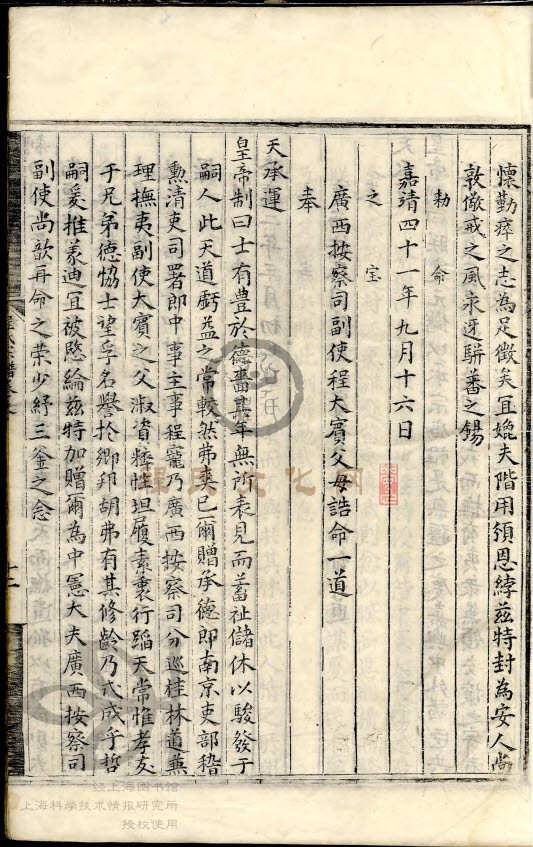 懷勤瘁之志為足徵矣宜媲夫階用頒恩綍茲特封為安人尚
敦儆戒之風永迓駢蕃之錫
勅命
嘉靖四十一年九月十六日
之宝
廣西按察司副使程大賓父母誥命一道
奉
天承運
皇帝制曰士有豊於德嗇其年無所表見而蓄祉儲休以駿發于
嗣人此天道虧益之常較然弗爽巳爾贈承德郎南京吏部稽
勲清吏司署郎中事主事程寵乃廣西按察司分巡桂林道兼
理撫夷副使大賓之父淑資粹性坦履素衷行蹈天常惟孝友
于兄弟德恊士望孚名譽扵鄉邦胡弗有其修齡乃式成乎哲
嗣爰推義迪宜被愍綸茲特加贈爾為中憲大夫廣西按察司
副使尚歆再命之荣少紓三釜之念
十二
经上海图书馆
上海科学技术情报研究所
授权使用